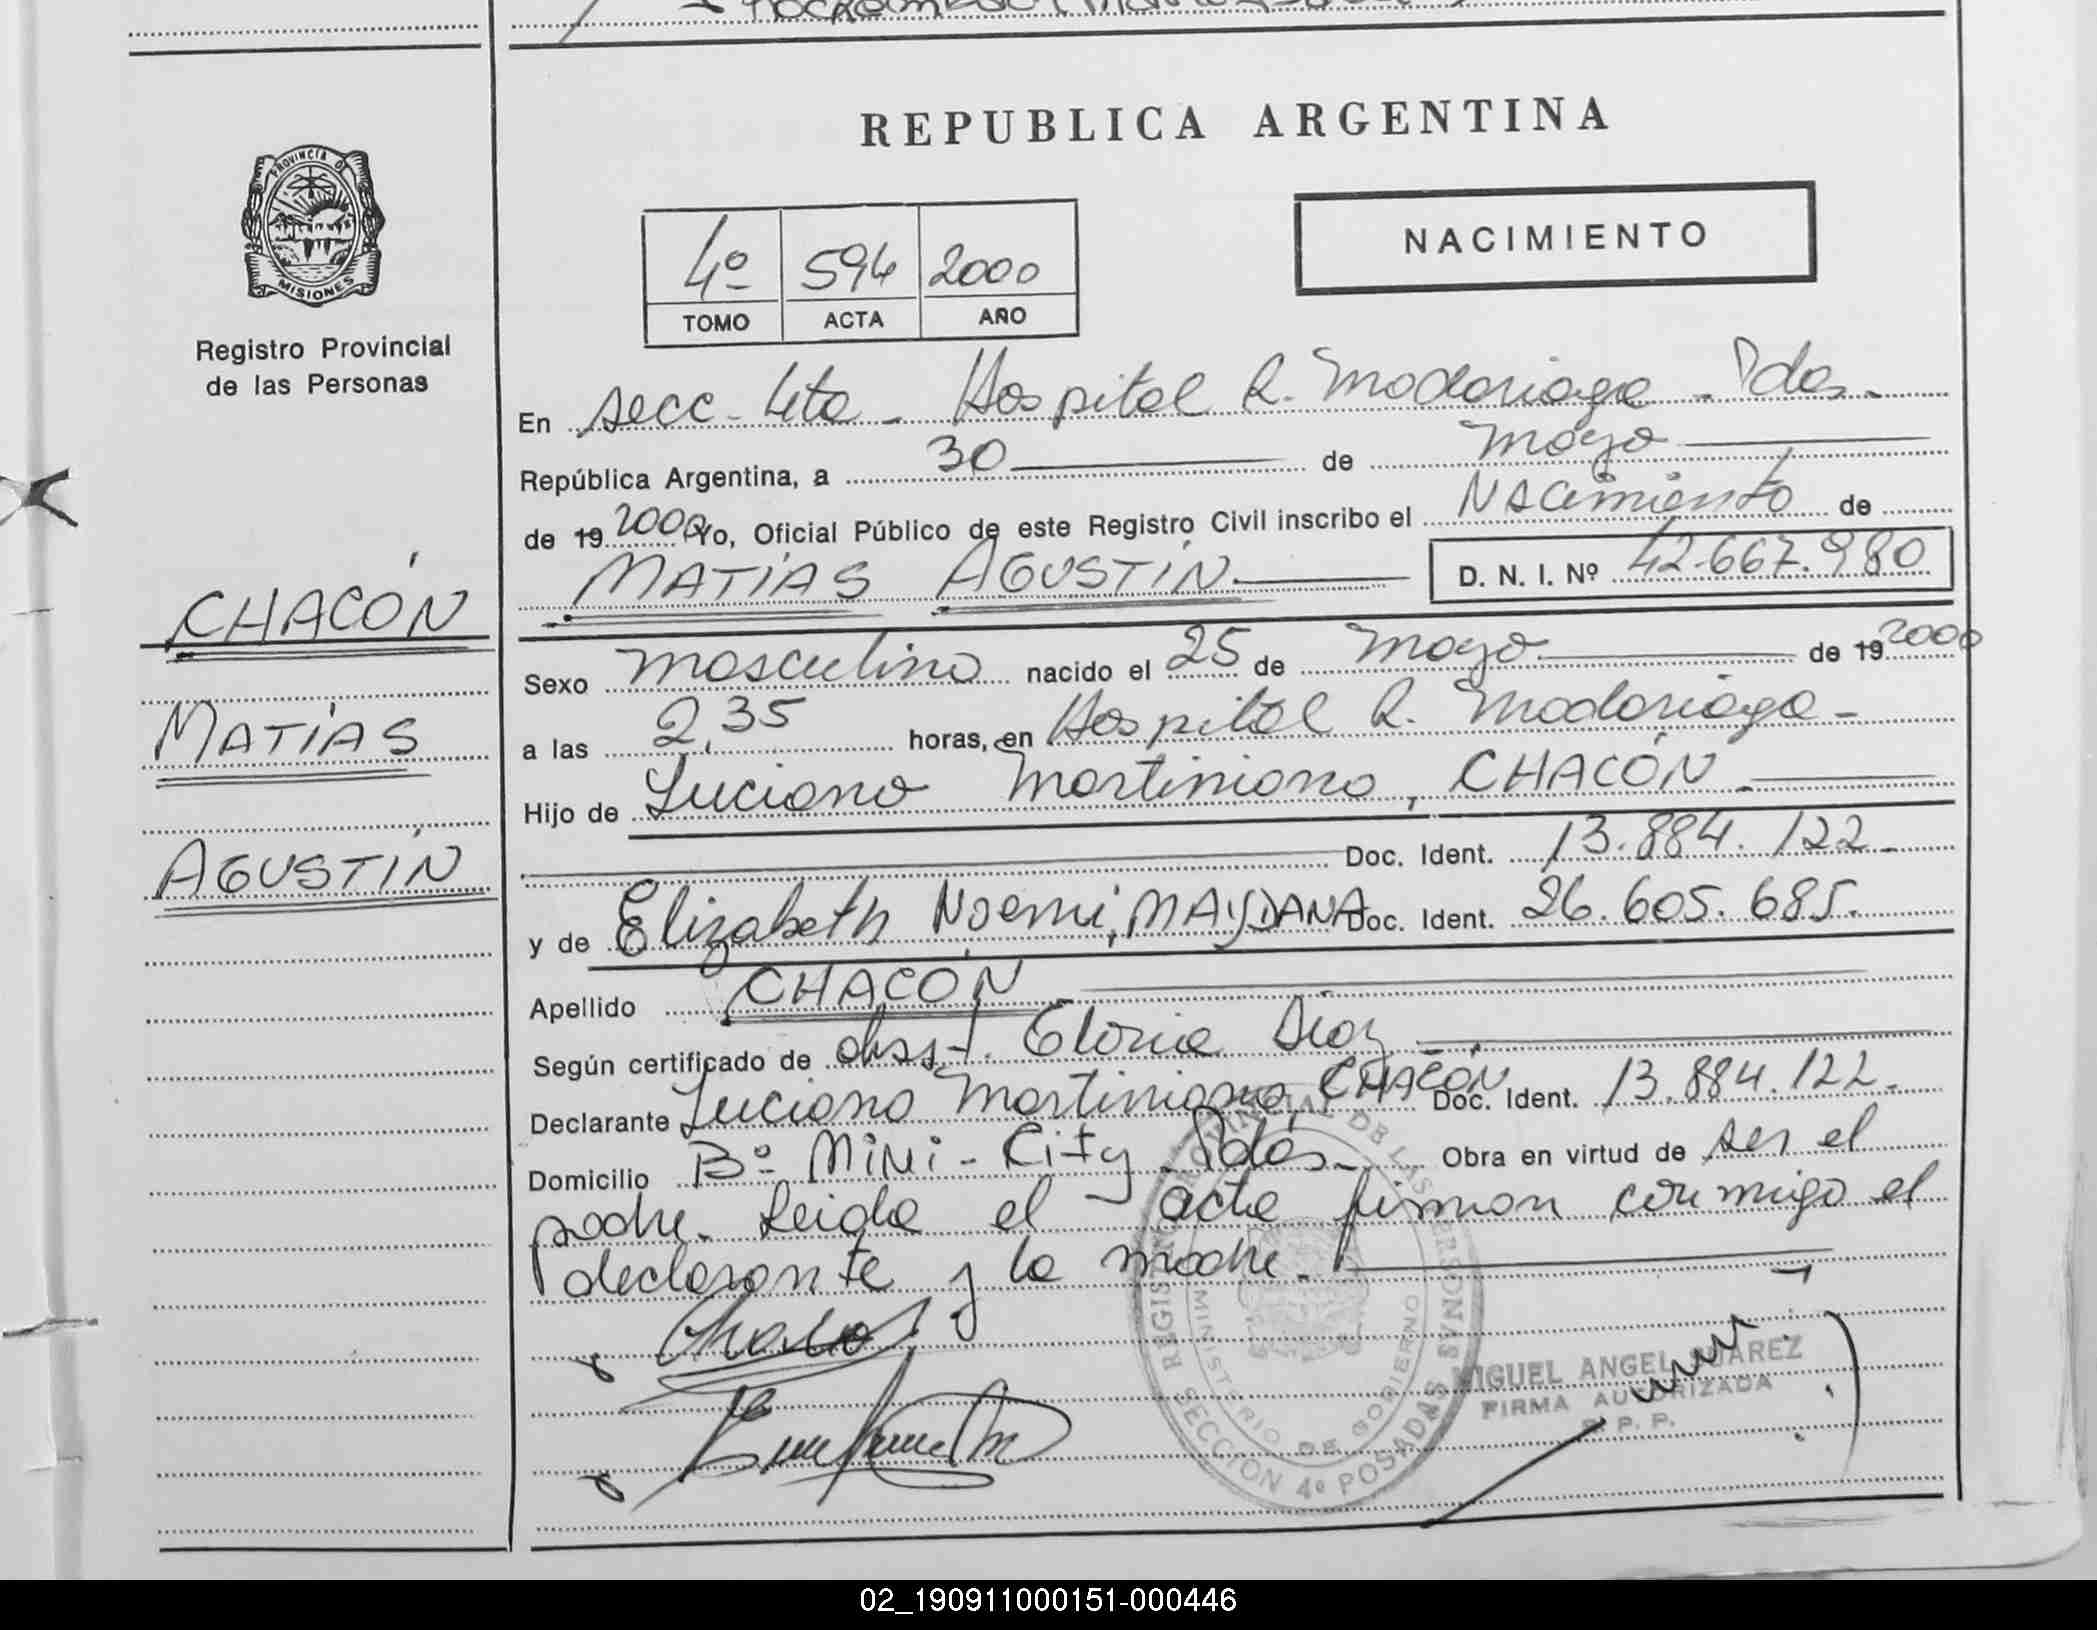 PROVINCIA DE
MISIONES
Registro Provincial
de las Personas
CHACÓN
MATÍAS
AGUSTÍN
REPUBLICA ARGENTINA
4º 594 2000
TOMO ACTA AÑO
NACIMIENTO
En secc - 4ta - Hospital R. Madariaga - Pdas.
República Argentina, a 30 de mayo
de 19 2000 Yo, Oficial Público de este Registro Civil inscribo el Nacimiento de
MATÍAS AGUSTÍN D. N. I. Nº 42.667.980
Sexo masculino nacido el 25 de mayo de 19 2000
a las 2,35 horas, en Hospital R. Madariaga -
Hijo de Luciano Martiniano, CHACÓN
Doc. Ident. 13.884.122.
y de Elizabeth Noemi, MAYDANA Doc. Ident. 26.605.685.
Apellido CHACÓN
Según certificado de obst. Gloria Diaz
Declarante Luciano Martiniano, CHACÓN Doc. Ident. 13.884.122.
Domicilio Bº Mini - City - Pdas. Obra en virtud de ser el
padre. Leida el acta firman conmigo el
declarante y la madre.
REGISTRO PROVINCIAL DE LAS PERSONAS
MINISTERIO DE GOBIERNO
SECCION 4º POSADAS
MIGUEL ANGEL SUAREZ
FIRMA AUTORIZADA
R. P. P.
02_190911000151-000446